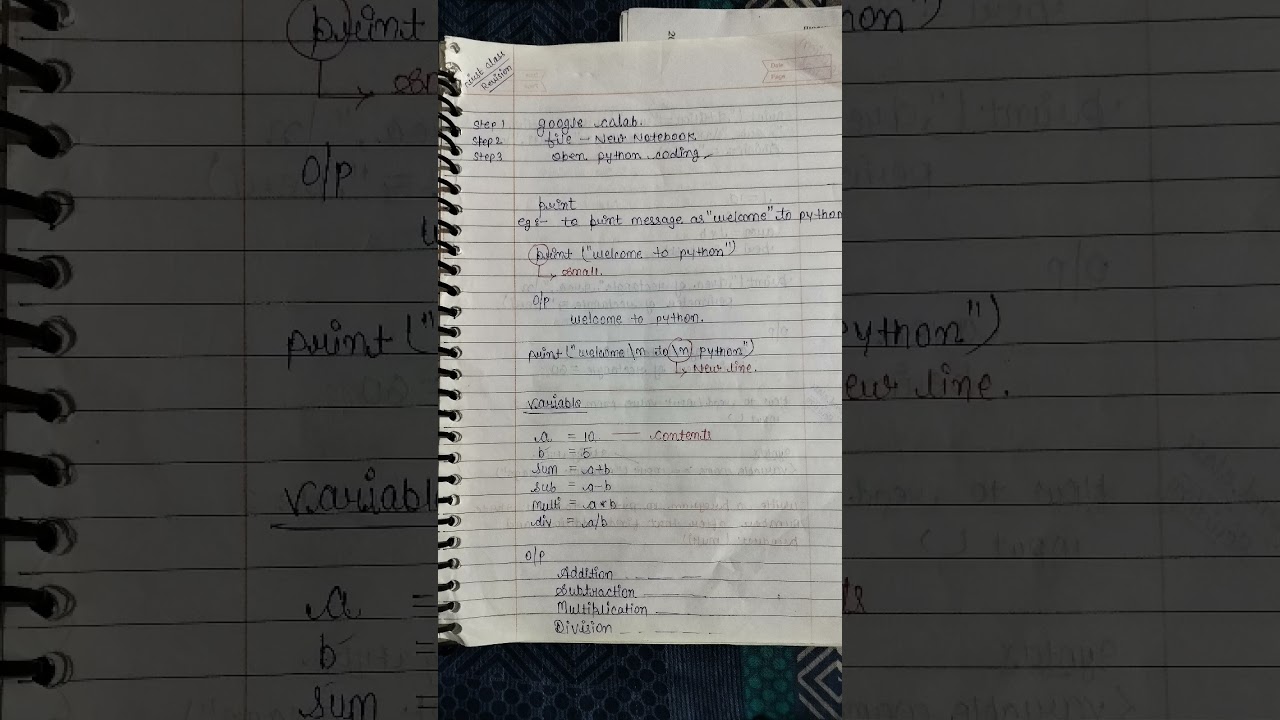 class
Revision
Date
Page
Step 1 google colab.
Step 2 file - New Notebook
Step 3 open python coding
print
eg:- to print message as "welcome" to python
print ("welcome to python")
small.
O/p
welcome to python.
print ("welcome \n to \n python")
New line.
variable
a = 10 — contents
b = 5
sum = a+b
sub = a-b
multi = a*b
div = a/b
O/p
Addition _ _ _
Subtraction _ _ _
Multiplication _ _ _
Division _ _ _